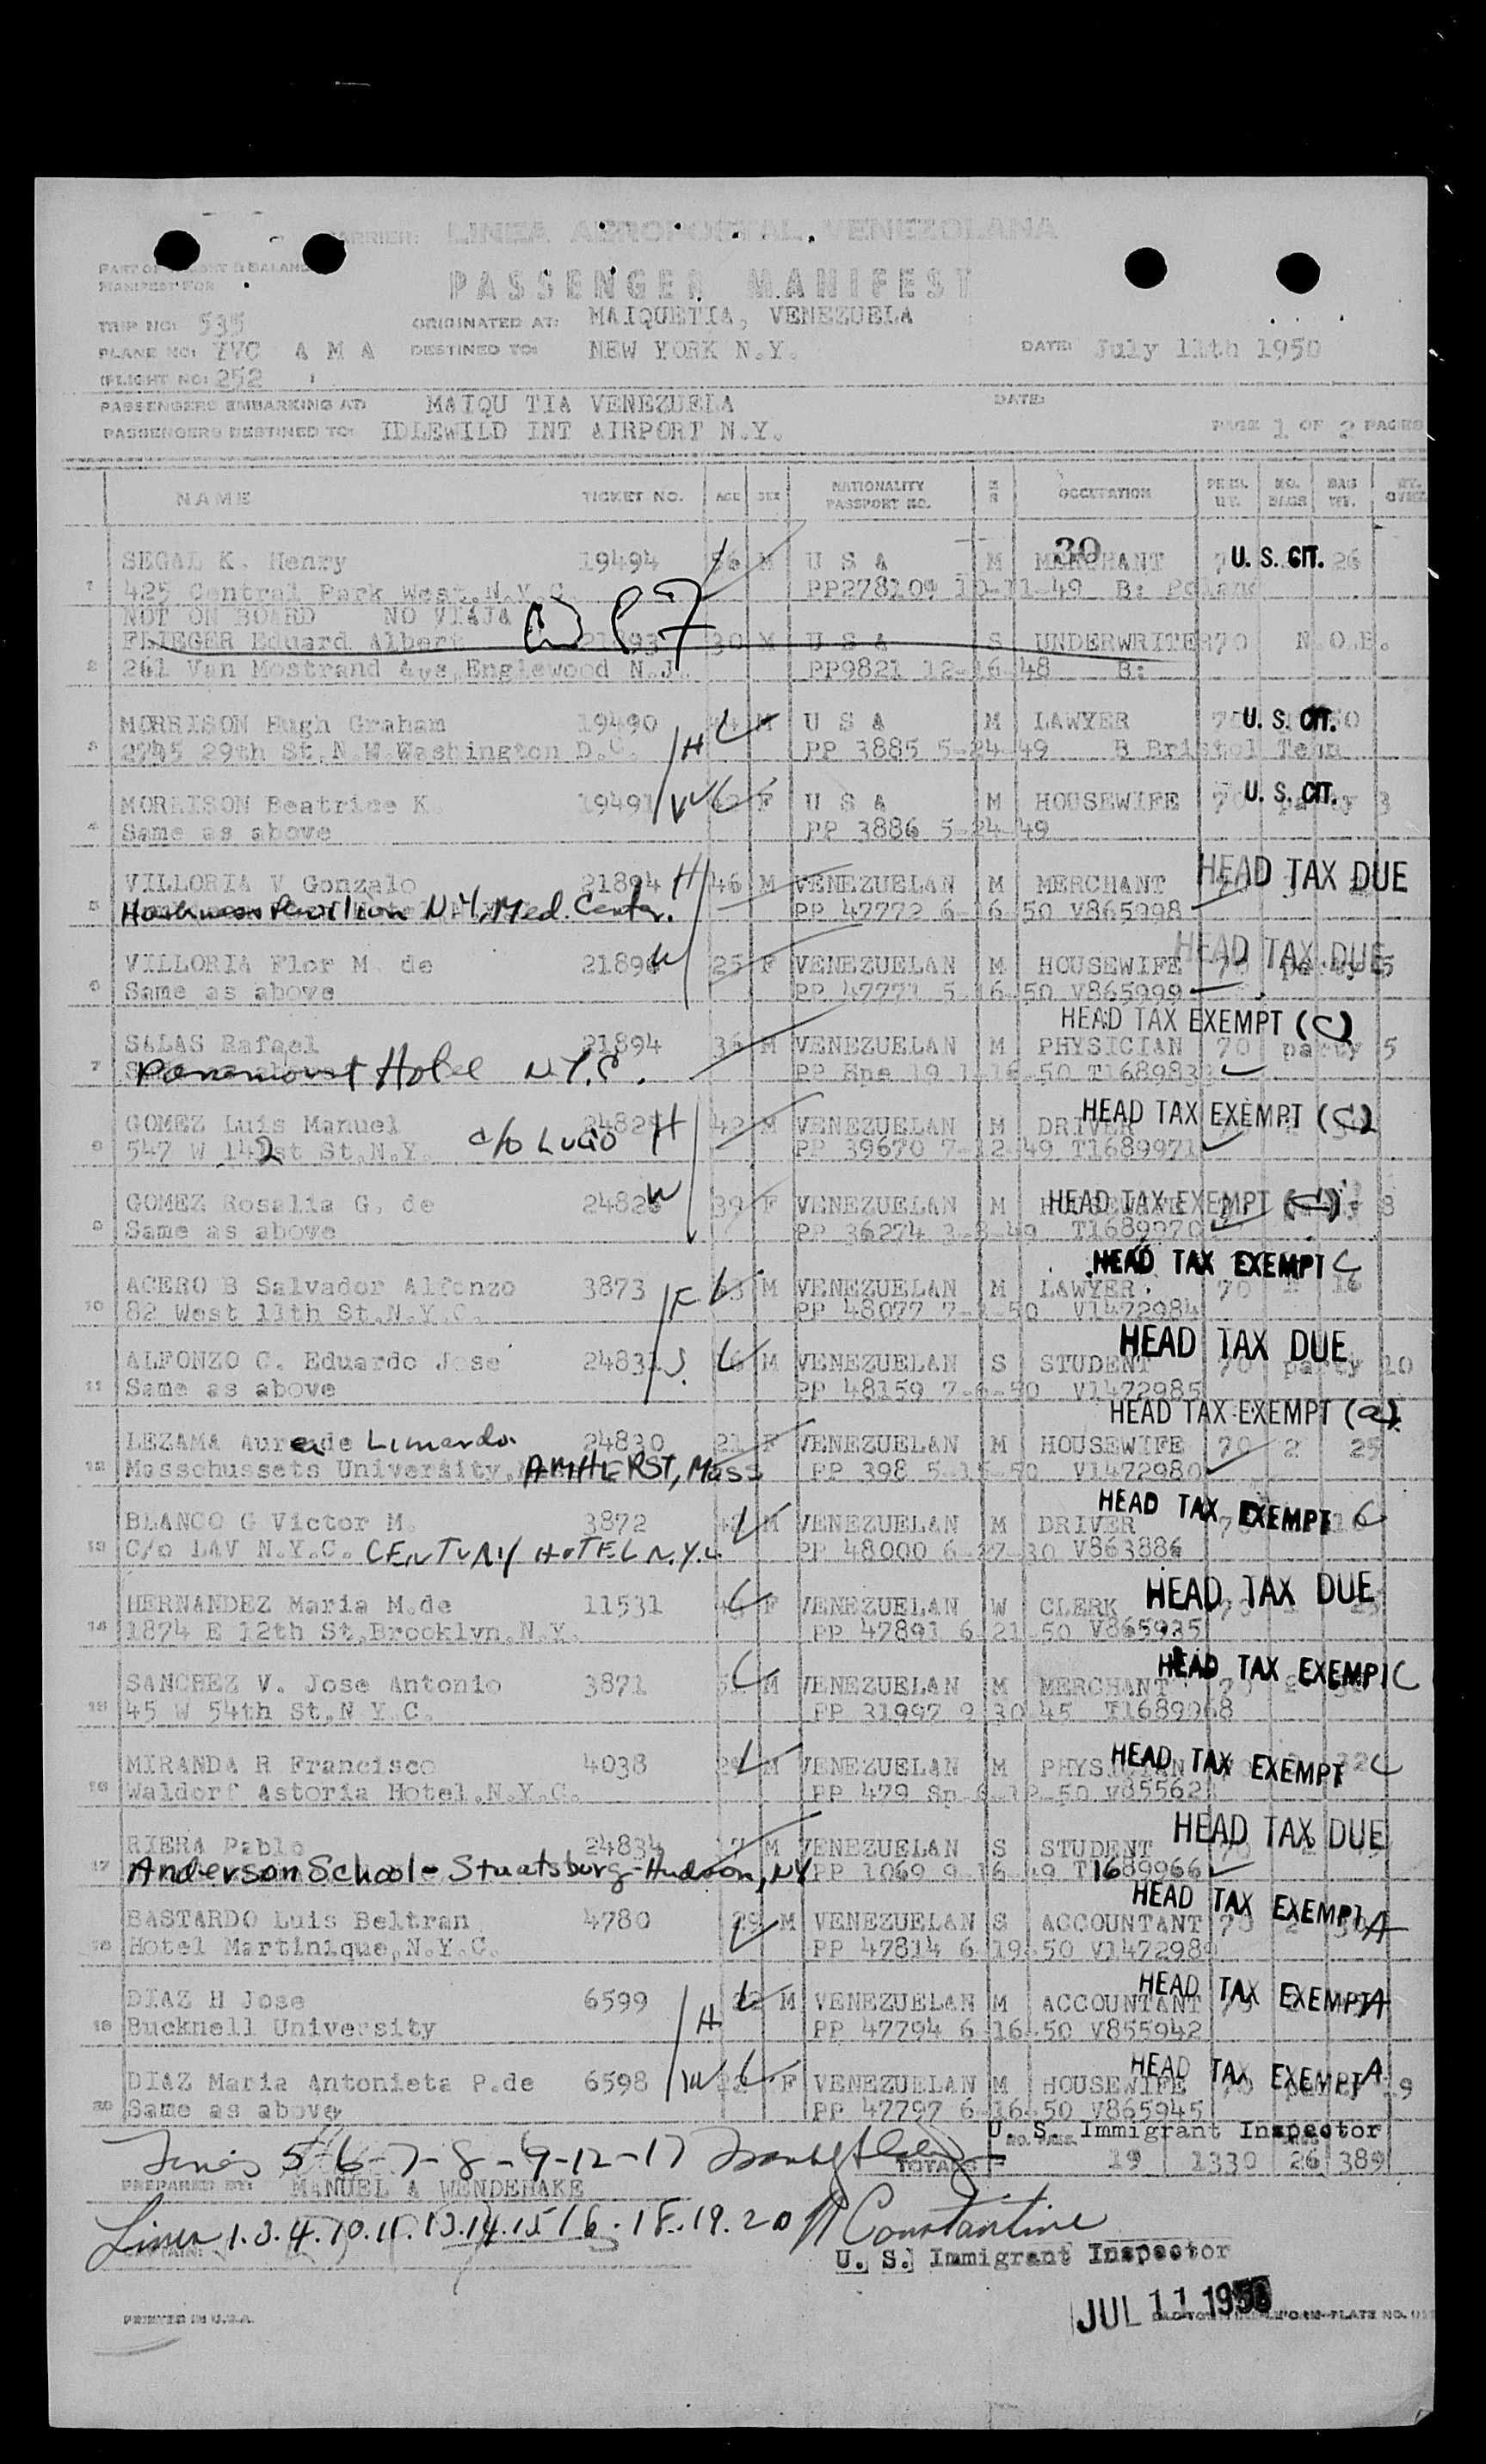 CARRIER: LINEA AEROPOSTAL VENEZOLANA
MANIFEST FOR
PASSENGER MANIFEST
TRIP NO: 535 ORIGINATED AT: MAIQUETIA, VENEZUELA
PLANE NO: YVC A M A DESTINED TO: NEW YORK N.Y. DATE: July 11th 1950
(FLIGHT NO: 252 )
PASSENGERS EMBARKING AT: MAIQU TIA VENEZUELA DATE:
PASSENGERS DESTINED TO: IDLEWILD INT AIRPORT N.Y. PAGE 1 OF 2 PAGES
NAME TICKET NO. AGE SEX NATIONALITY PASSPORT NO. M S OCCUPATION NO. BAGS BAG WT.
SEGAL K. Henry 19494 56 M U S A M MERCHANT 30 U. S. CIT. 26
1 425 Central Park West.N.Y.C. 10-11-49 B: Poland
NOT ON BOARD NO VIAJA
FLIEGER Eduard Albert 21893 30 M U S A S UNDERWRITER 70 N.O.B.
2 261 Van Mostrand Ave.Englewood N.J. PP9821 12-16-48 B:
MORRISON Hugh Graham 19490 M U S A M LAWYER U. S. CIT.
3 2745 29th St.N.W.Washington D.C. H PP 3885 5-24-49 B Bristol Tenn
MORRISON Beatrice K. 19491 W F U S A M HOUSEWIFE 70 U. S. CIT. party 3
4 Same as above PP 3886 5-24-49
VILLORIA V Gonzalo 21894 H 46 M VENEZUELAN M MERCHANT HEAD TAX DUE
5 Harkness Pavilion N.Y. Med. Center. PP 47772 6-16-50 V865998
VILLORIA Flor M. de W 25 F VENEZUELAN M HOUSEWIFE 70 HEAD TAX DUE party 5
6 Same as above PP 47771 5-16-50 V865999
HEAD TAX EXEMPT (C)
SALAS Rafael 21894 36 M VENEZUELAN M PHYSICIAN 70 party 5
7 Paramount Hotel N.Y.C.
GOMEZ Luis Manuel 24825 H 42 M VENEZUELAN M DRIVER HEAD TAX EXEMPT (C)
8 547 W 142st St.N.Y. c/o LUGO PP 39670 7-12-49 T1689971
GOMEZ Rosalia G. de 24826 W 39 F VENEZUELAN M HOUSEWIFE HEAD TAX EXEMPT (C) party 8
9 Same as above PP 36274 3-8-49 T1689970
HEAD TAX EXEMPT C
ACERO B Salvador Alfonzo 3873 F M VENEZUELAN M LAWYER 70 16
10 82 West 11th St.N.Y.C. PP 48077 V1472984
HEAD TAX DUE
ALFONZO C. Eduardo Jose 24831 S. M VENEZUELAN S STUDENT 70 party 10
11 Same as above PP 48159 7-6-50 V1472985
HEAD TAX EXEMPT (a)
LEZAMA Aurea de Limardo 24830 21 F VENEZUELAN M HOUSEWIFE 70 2 25
12 Masschussets University, AMHERST, Mass PP 398 5-15-50 V1472980
BLANCO G Victor M. 3872 M VENEZUELAN M DRIVER HEAD TAX EXEMPT C
13 C/o LAV N.Y.C. CENTURY HOTEL N.Y.C. PP 48000 V863886
HERNANDEZ Maria M.de 11531 F VENEZUELAN W CLERK HEAD TAX DUE
14 1874 E 12th St.Brooklyn.N.Y. PP 47891 6-21-50 V865935
SANCHEZ V. Jose Antonio 3871 M VENEZUELAN M MERCHANT HEAD TAX EXEMPT C
15 45 W 54th St.N Y.C. PP 31997 9-30-45 T1689968
MIRANDA R Francisco 4038 M VENEZUELAN M PHYSICIAN HEAD TAX EXEMPT C
16 Waldorf Astoria Hotel.N.Y.C. PP 479
RIERA Pablo 24834 17 M VENEZUELAN S STUDENT HEAD TAX DUE
17 Anderson School - Staatsburg-Hudson, NY PP 1069 9-16-49 T1689966
BASTARDO Luis Beltran 4780 29 M VENEZUELAN S ACCOUNTANT 70 2 HEAD TAX EXEMPT A
18 Hotel Martinique,N.Y.C. PP 47814 6-19-50
DIAZ H Jose 6599 H M VENEZUELAN M ACCOUNTANT HEAD TAX EXEMPT A
19 Bucknell University PP 47794 6-16-50 V855942
DIAZ Maria Antonieta P.de 6598 W 22 F VENEZUELAN M HOUSEWIFE 70 HEAD TAX EXEMPT A 19
20 Same as above PP 47797 6-16-50 V865945
U. S. Immigrant Inspector
Lines 5-6-7-8-9-12-17 TOTALS 19 1330 26 389
PREPARED BY: MANUEL A WENDEHAKE
Lines 1.3.4.10.11.13.14.15.16.18.19.20 Constantine
U. S. Immigrant Inspector
JUL 11 1950
PRINTED IN U.S.A.